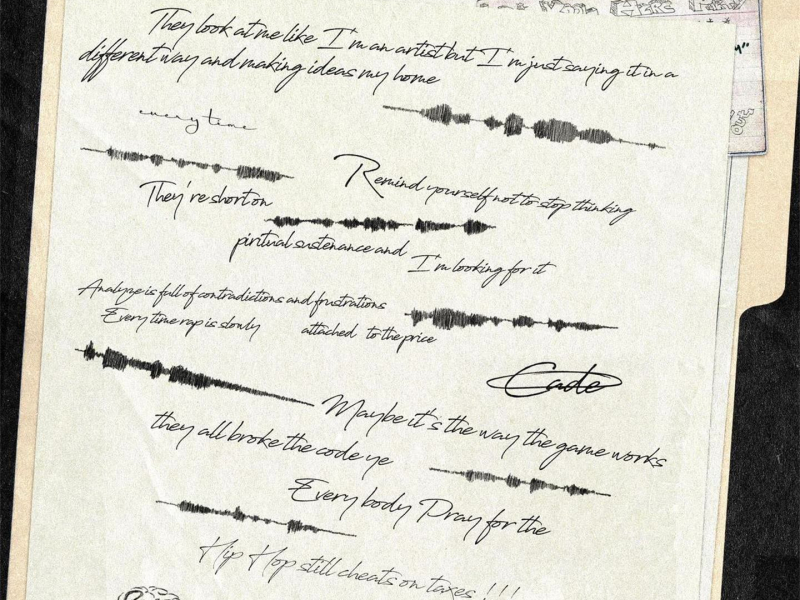 They look at me like I'm an artist but I'm just saying it in a
different way and making ideas my home
everytime
Remind yourself not to stop thinking
They're short on
piritual sustenance and
I'm looking for it
Analyze is full of contradictions and frustrations
Every time rap is slowly attached to the price
Cade
Maybe it's the way the game works
they all broke the code ye
Everybody Pray for the
Hip Hop still cheats on taxes !!!